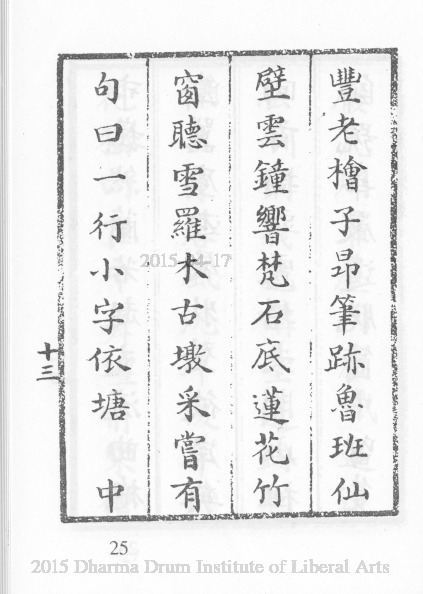 豐老檜子昂筆跡魯班仙
壁雲鐘響梵石底蓮花竹
窗聽雪羅木古墩采嘗有
句曰一行小字依塘 中
十三
25
2015-04-17
2015 Dharma Drum Institute of Liberal Arts